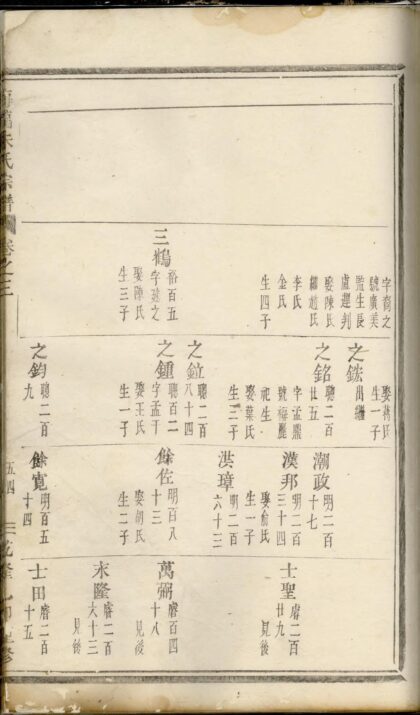 字裔之
號廣美
監生長
盧運判
娶陳氏
繼趙氏
李氏
金氏
生四子
三鶴
裕百五
字遠之
娶陳氏
生三子
娶蔣氏
生一子
之鋐
出繼
之銘
聰二百
廿五
字孟熙
號福麗
祀生
娶葉氏
生三子
之鉝
聰二百
八十四
之鍾
聰百二
字孟于
娶王氏
生一子
之鈞
聰二百
九
潮政
明二百
十七
漢邦
明二百
三十四
娶俞氏
生一子
洪璋
明二百
六十三
餘佐
明百八
十三
娶胡氏
生二子
餘寬
明百五
十四
士聖
睿二百
廿九
見後
萬弼
睿百四
十八
見後
末隆
睿二百
六十三
見後
士田
睿二百
十五
氏宗譜
卷之三
五四
三
乾隆